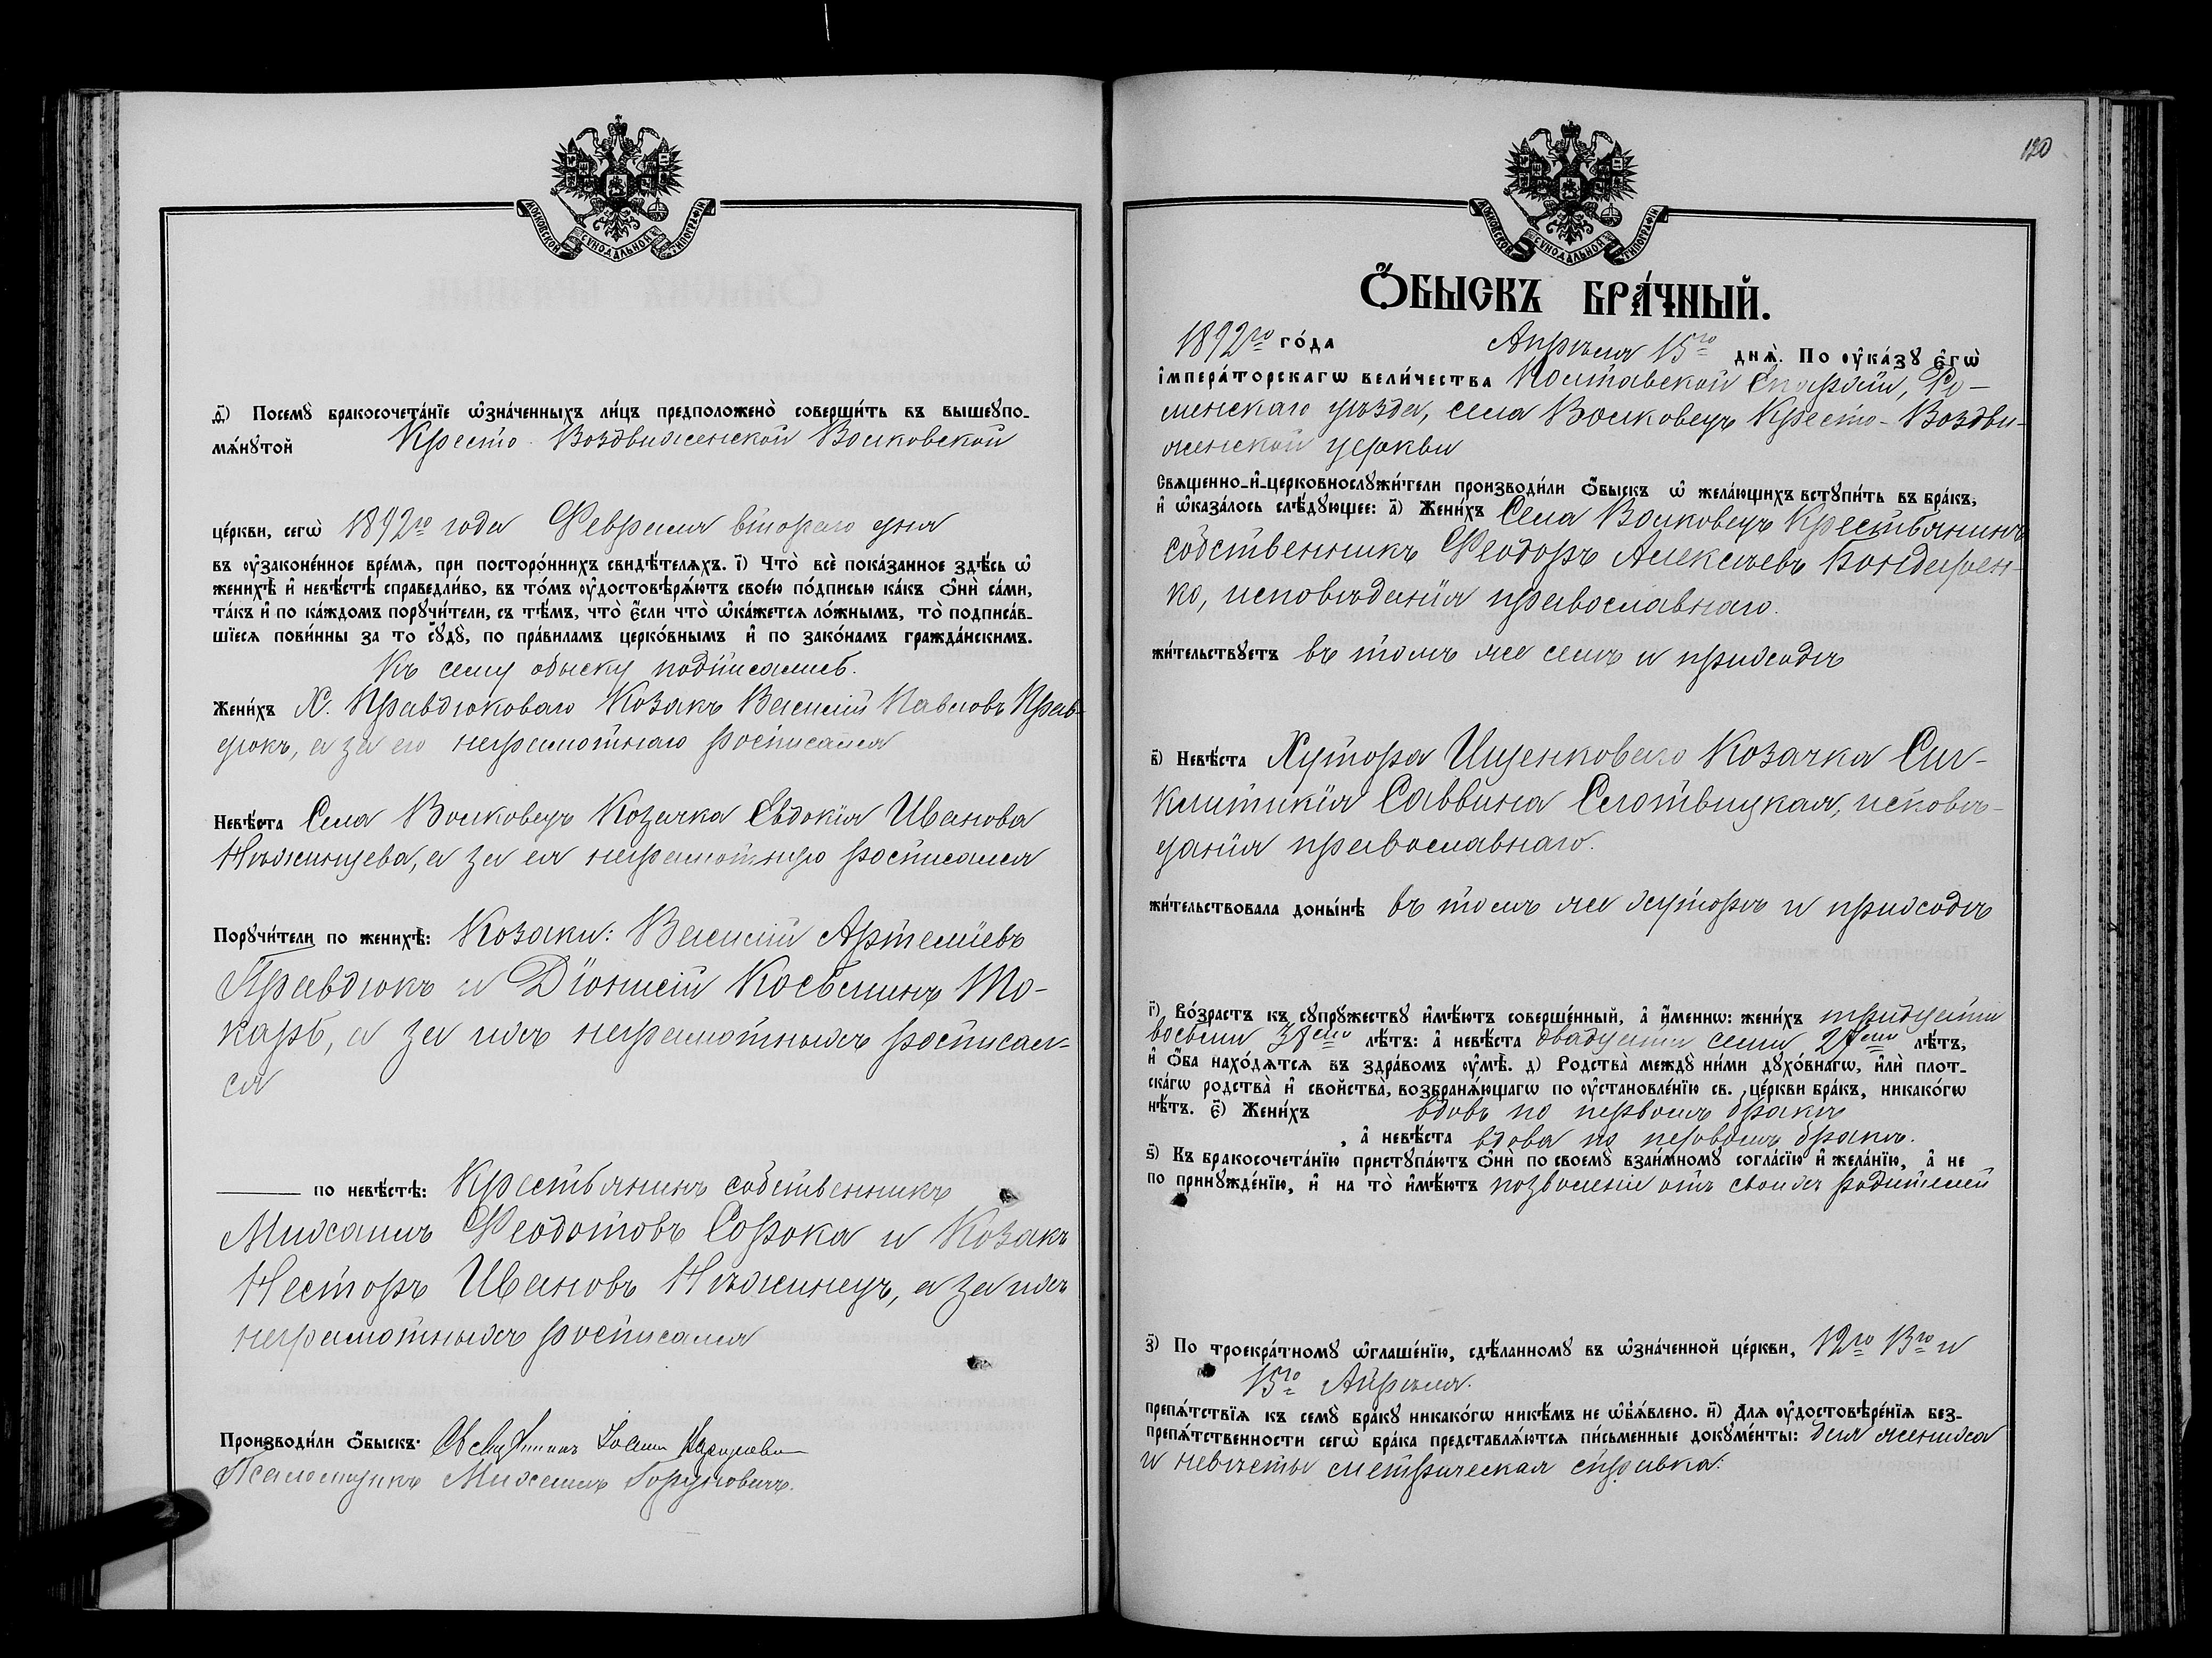 МОСКОВСКОЙ СѴНОДАЛЬНОЙ ТИПОГРАФІИ
д҃) Посемꙋ̀ бракосочета́нїе ѡ҆зна́ченныхъ ли́цъ предположено̀ соверши́ть въ вышеꙋпо-
мѧ́нꙋтой Кресто-Воздвиженской Волковской
це́ркви, сегѡ̀ 1892го года Февраля втораго дня
въ ᲂу҆законе́нное вре́мѧ, при посторо́ннихъ свидѣ́телѧхъ. і҃) Что̀ всѐ пока́занное здѣ́сь ѡ҆
женихѣ̀ и҆ невѣ́стѣ справедли́во, въ то́мъ ᲂу҆достовѣрѧ́ютъ своє́ю по́дписью ка́къ ѻ҆нѝ са́ми,
та́къ и҆ по ка́ждомъ порꙋчи́тели, съ тѣ́мъ, что̀ є҆́сли что̀ ѡ҆ка́жетсѧ ло́жнымъ, то̀ подписа́в-
шїесѧ пови́нны за то сꙋ́дꙋ, по пра́виламъ церко́внымъ и҆ по зако́намъ гражда́нскимъ.
Къ сему обыску подписались.
Жени́хъ Х. Правдюковаго Козакъ Василій Павловъ Прав-
дюкъ, а за его неграмотнаго росписался
Невѣ́ста Села Волковецъ Козачка Евдокія Иванова
Нѣжинцева, а за ея неграмотную росписался
Порꙋчи́тели по женихѣ̀: Козаки: Василій Артеміевъ
Правдюкъ и Діонисій Косьминъ То-
карь, а за ихъ неграмотныхъ росписал-
ся
по невѣ́стѣ: Крестьянинъ собственникъ
Михаилъ Феодотовъ Сорока и Козакъ
Несторъ Ивановъ Нѣжинецъ, а за ихъ
неграмотныхъ росписался
Производи́ли ѻ҆́быскъ: Священникъ Іоаннъ
Псаломщикъ Михаилъ
120
МОСКОВСКОЙ СѴНОДАЛЬНОЙ ТИПОГРАФІИ
Ѻ҆́БЫСКЪ БРА́ЧНЫЙ.
1892го го́да Апрѣля 15го днѧ̀. По ᲂу҆ка́зꙋ є҆гѡ̀
і҆мпера́торскагѡ вели́чества Полтавской Епархіи, Ро-
менскаго уѣзда, села Волковецъ Кресто-Воздви-
женской церкви
Свѧщенно-и҆-церковнослꙋжи́тели производи́ли ѻ҆́быскъ ѡ҆ жела́ющихъ встꙋпи́ть въ бра́къ,
и҆ ѡ҆каза́лось слѣ́дꙋющее: а҃) Жени́хъ Села Волковецъ Крестьянинъ
собственникъ Феодоръ Алексѣевъ Кондарен-
ко, исповѣданія православнаго.
жи́тельствꙋетъ въ томъ же селѣ и приходѣ
в҃) Невѣ́ста Хутора Ищенковаго Козачка Син-
клитикія Саввина Слотвицкая, исповѣ-
данія православнаго.
жи́тельствовала доны́нѣ въ томъ же хуторѣ и приходѣ
г҃) Во́зрастъ къ сꙋпрꙋ́жествꙋ и҆мѣ́ютъ соверше́нный, а҆ и҆́меннѡ: жени́хъ тридцати
восьми 38ми лѣ́тъ: а҆ невѣ́ста двадцати семи 27ми лѣ́тъ,
и҆ ѻ҆́ба нахо́дѧтсѧ въ здра́вомъ ᲂу҆мѣ̀. д҃) Родства̀ междꙋ̀ ни́ми дꙋхо́внагѡ, и҆лѝ плот-
ска́гѡ родства̀ и҆ свойства̀, возбранѧ́ющагѡ по ᲂу҆становле́нїю св. це́ркви бра́къ, никако́гѡ
нѣ́тъ. є҃) Жени́хъ вдовъ по первомъ бракѣ
, а҆ невѣ́ста вдова по первомъ бракѣ.
ѕ҃) Къ бракосочета́нїю пристꙋпа́ютъ ѻ҆нѝ по своемꙋ̀ взаи́мномꙋ согла́сїю и҆ жела́нїю, а҆ не
по принꙋжде́нїю, и҆ на то̀ и҆мѣ́ютъ позволеніе отъ своихъ родителей
з҃) По троекра́тномꙋ ѡ҆глаше́нїю, сдѣ́ланномꙋ въ ѡ҆зна́ченной це́ркви, 12го 13го и
15го Апрѣля.
препѧ́тствїѧ къ семꙋ̀ бра́кꙋ никако́гѡ никѣ́мъ не ѡ҆б̾ѧ́влено. и҃) Длѧ ᲂу҆достовѣре́нїѧ без-
препѧ́тственности сегѡ̀ бра́ка представлѧ́ютсѧ пи́сьменные докꙋме́нты: для жениха
и невѣсты метрическая справка.